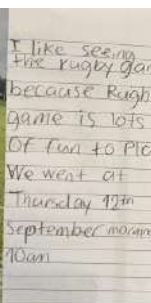 I like seeing
the rugby gar
because Rugh
game is lots
Of fun to Pla
We went at
Thursday 12th
September
10am